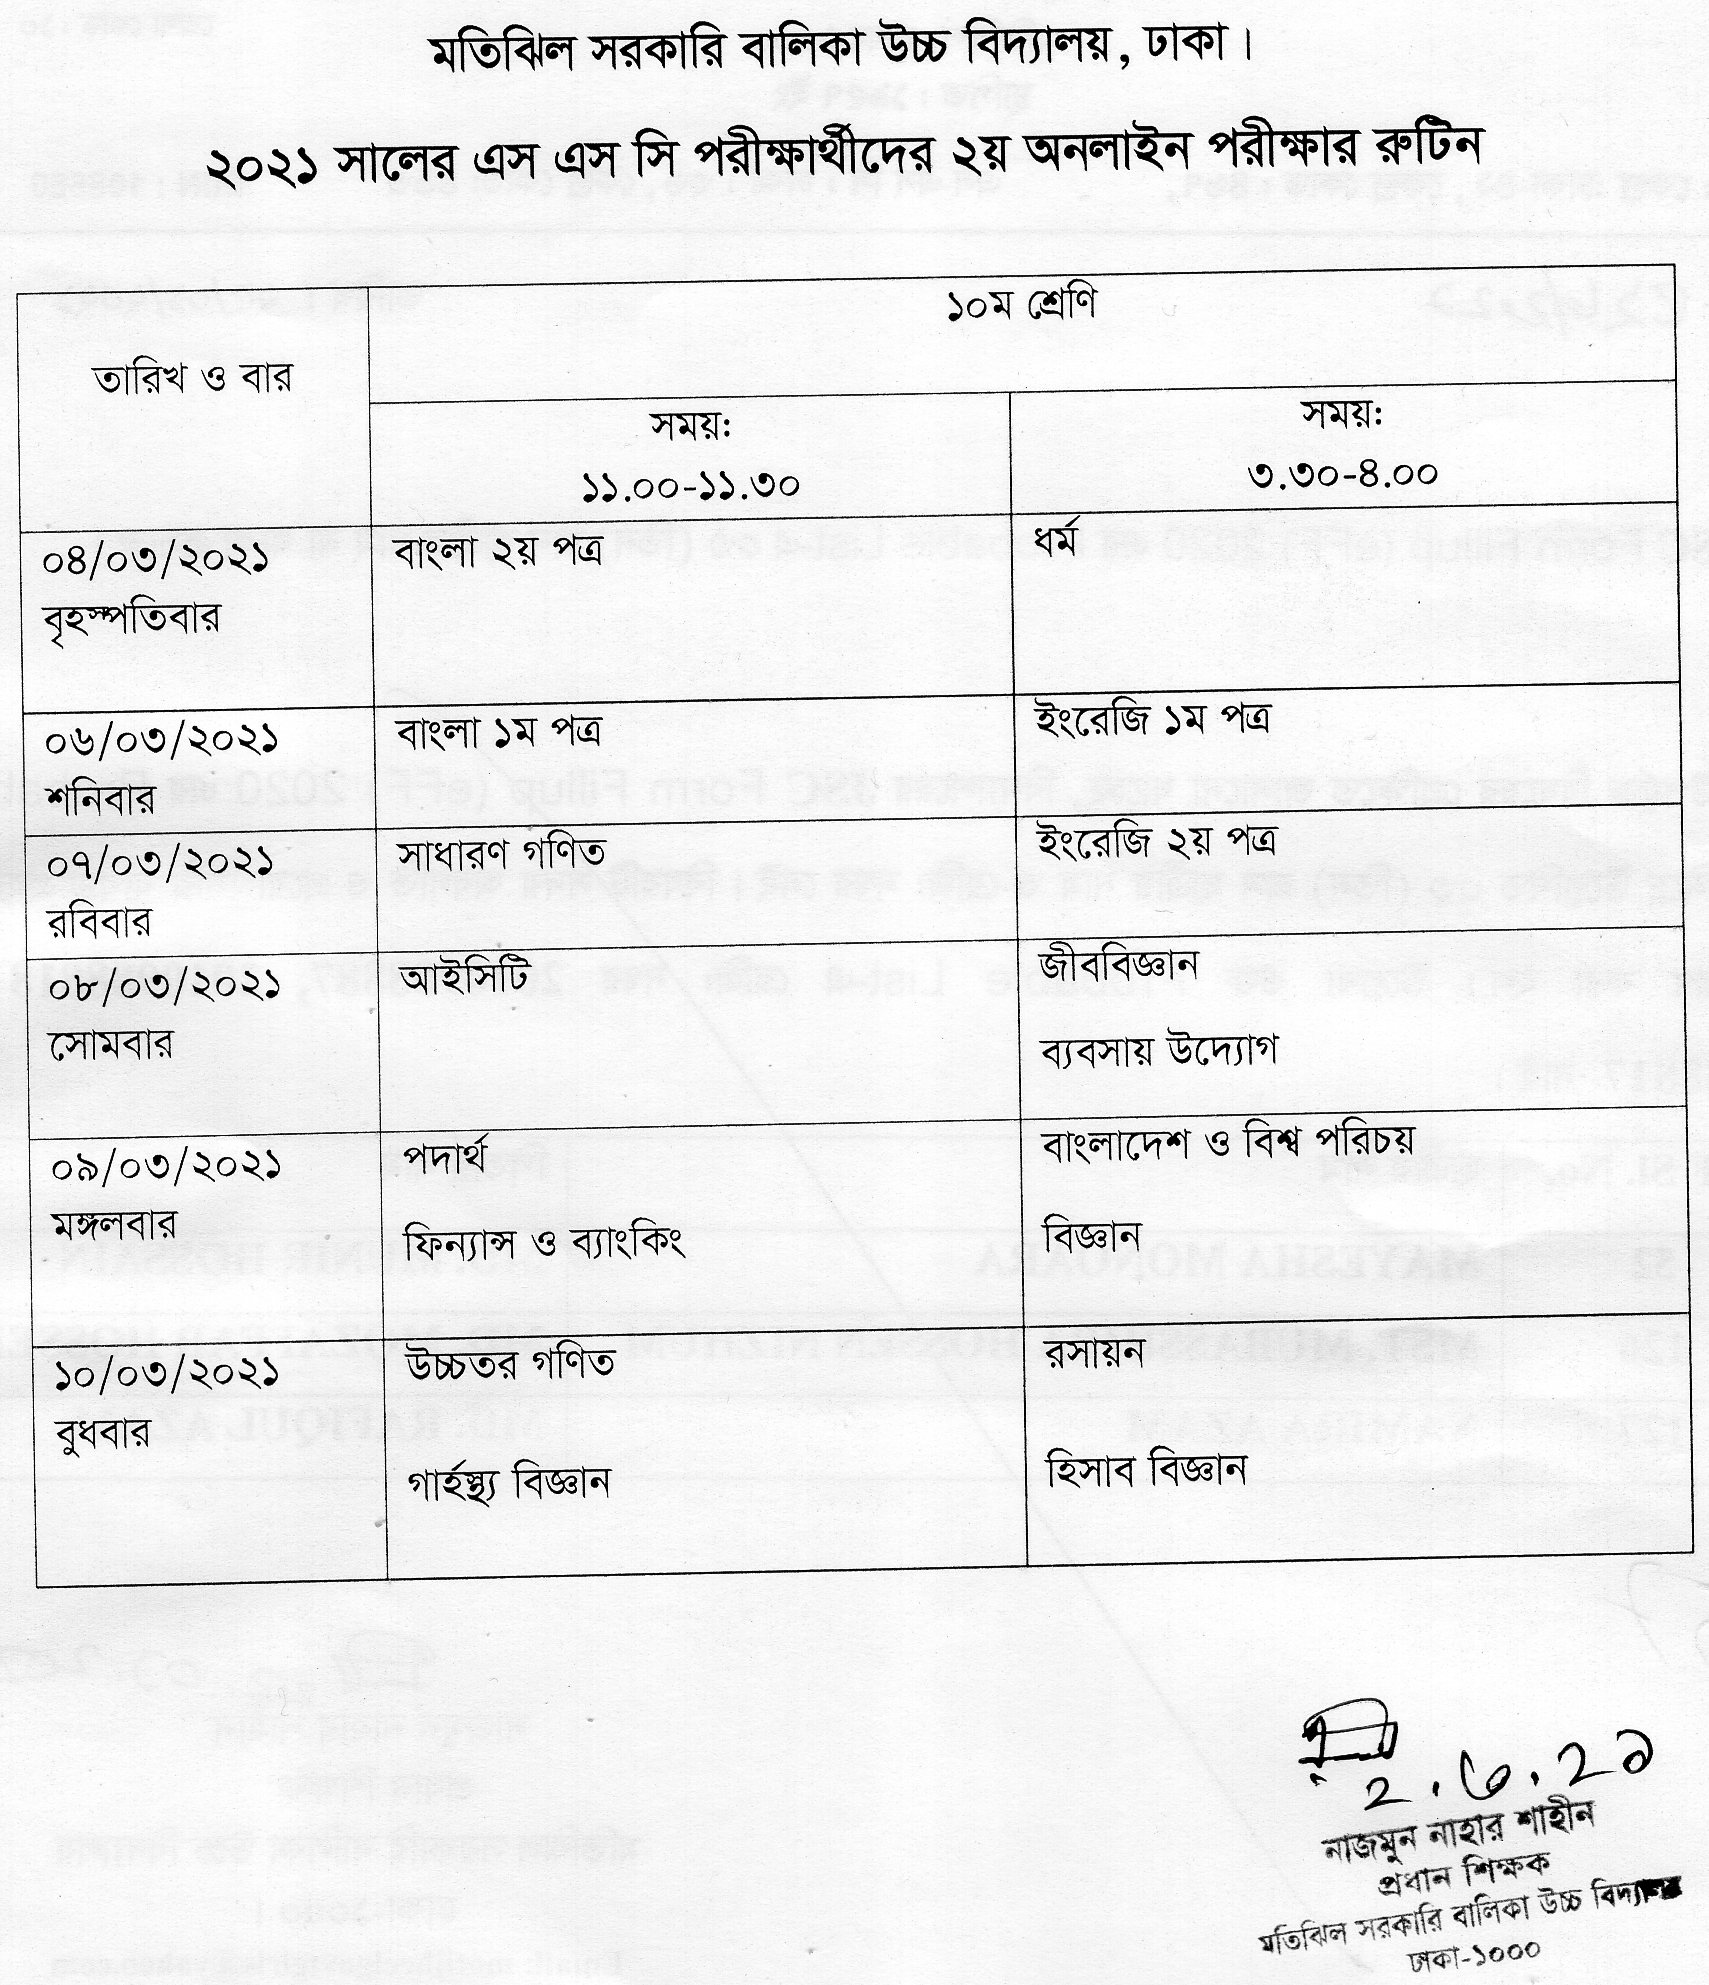 মতিঝিল সরকারি বালিকা উচ্চ বিদ্যালয়, ঢাকা।
২০২১ সালের এস এস সি পরীক্ষার্থীদের ২য় অনলাইন পরীক্ষার রুটিন
তারিখ ও বার
১০ম শ্রেণি
সময়:
১১.০০-১১.৩০
সময়:
৩.৩০-৪.০০
০৪/০৩/২০২১
বৃহস্পতিবার
বাংলা ২য় পত্র
ধর্ম
০৬/০৩/২০২১
শনিবার
বাংলা ১ম পত্র
ইংরেজি ১ম পত্র
০৭/০৩/২০২১
রবিবার
সাধারণ গণিত
ইংরেজি ২য় পত্র
০৮/০৩/২০২১
সোমবার
আইসিটি
জীববিজ্ঞান
ব্যবসায় উদ্যোগ
০৯/০৩/২০২১
মঙ্গলবার
পদার্থ
ফিন্যান্স ও ব্যাংকিং
বাংলাদেশ ও বিশ্ব পরিচয়
বিজ্ঞান
১০/০৩/২০২১
বুধবার
উচ্চতর গণিত
গার্হস্থ্য বিজ্ঞান
রসায়ন
হিসাব বিজ্ঞান
২.৩.২১
নাজমুন নাহার শাহীন
প্রধান শিক্ষক
মতিঝিল সরকারি বালিকা উচ্চ
ঢাকা-১০০০